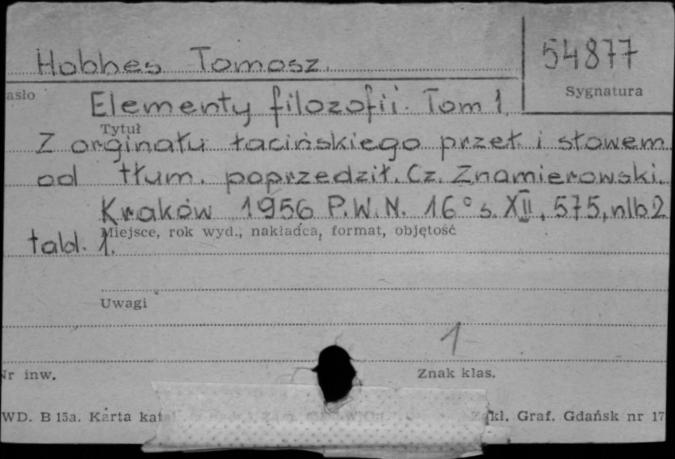 Hobbes Tomasz.
54877
asło
Sygnatura
Elementy filozofii. Tom 1.
Tytuł
Z orginału łacińskiego przeł. i słowem
od tłum. poprzedził. Cz. Znamierowski.
Kraków 1956 P.W.N. 16° s. XII, 575, nlb 2
Miejsce, rok wyd., nakładca, format, objętość
tabl. 1.
Uwagi
1
Nr inw.
Znak klas.
WD. B 15a. Karta kata
Zakł. Graf. Gdańsk nr 17